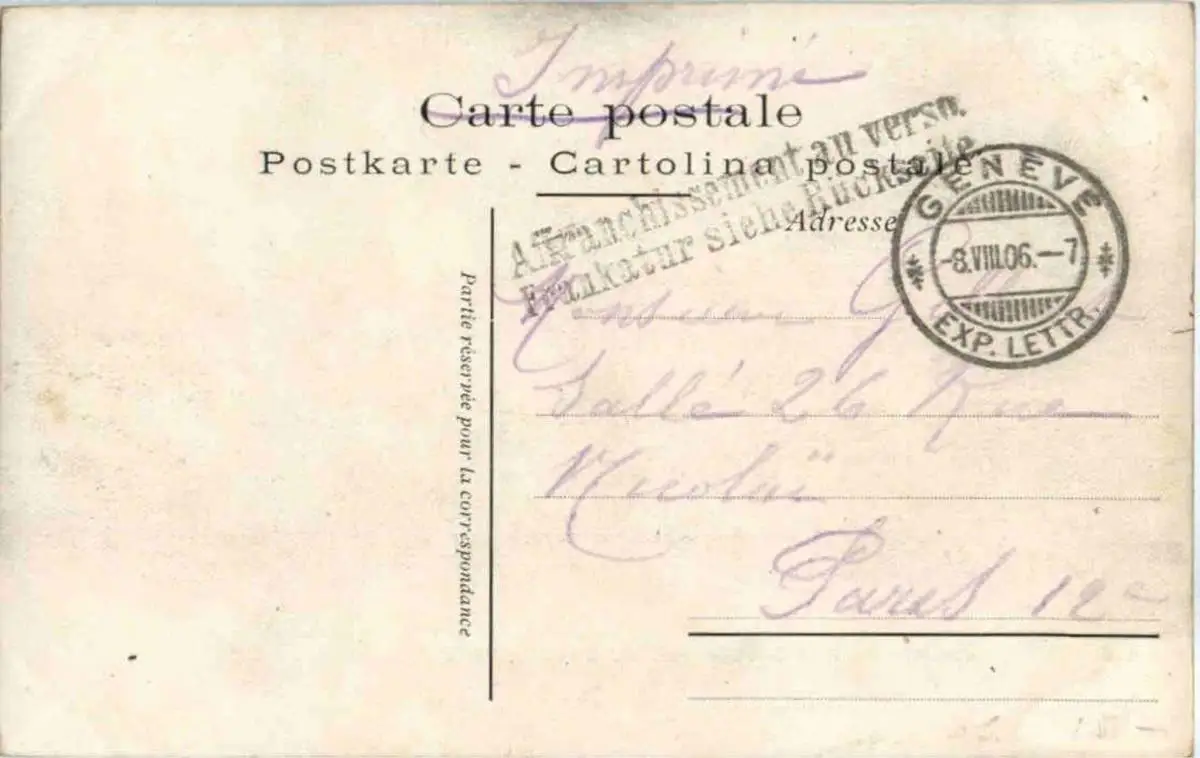 Imprimé
Carte postale
Postkarte - Cartolina postale
Affranchissement au verso.
Frankatur siehe Rückseite.
Adresse
GENÈVE
-8.VIII.06.-7
EXP. LETTR.
Partie réservée pour la correspondance
Monsieur
Sallé 26 Rue
Nicolaï
Paris 12e